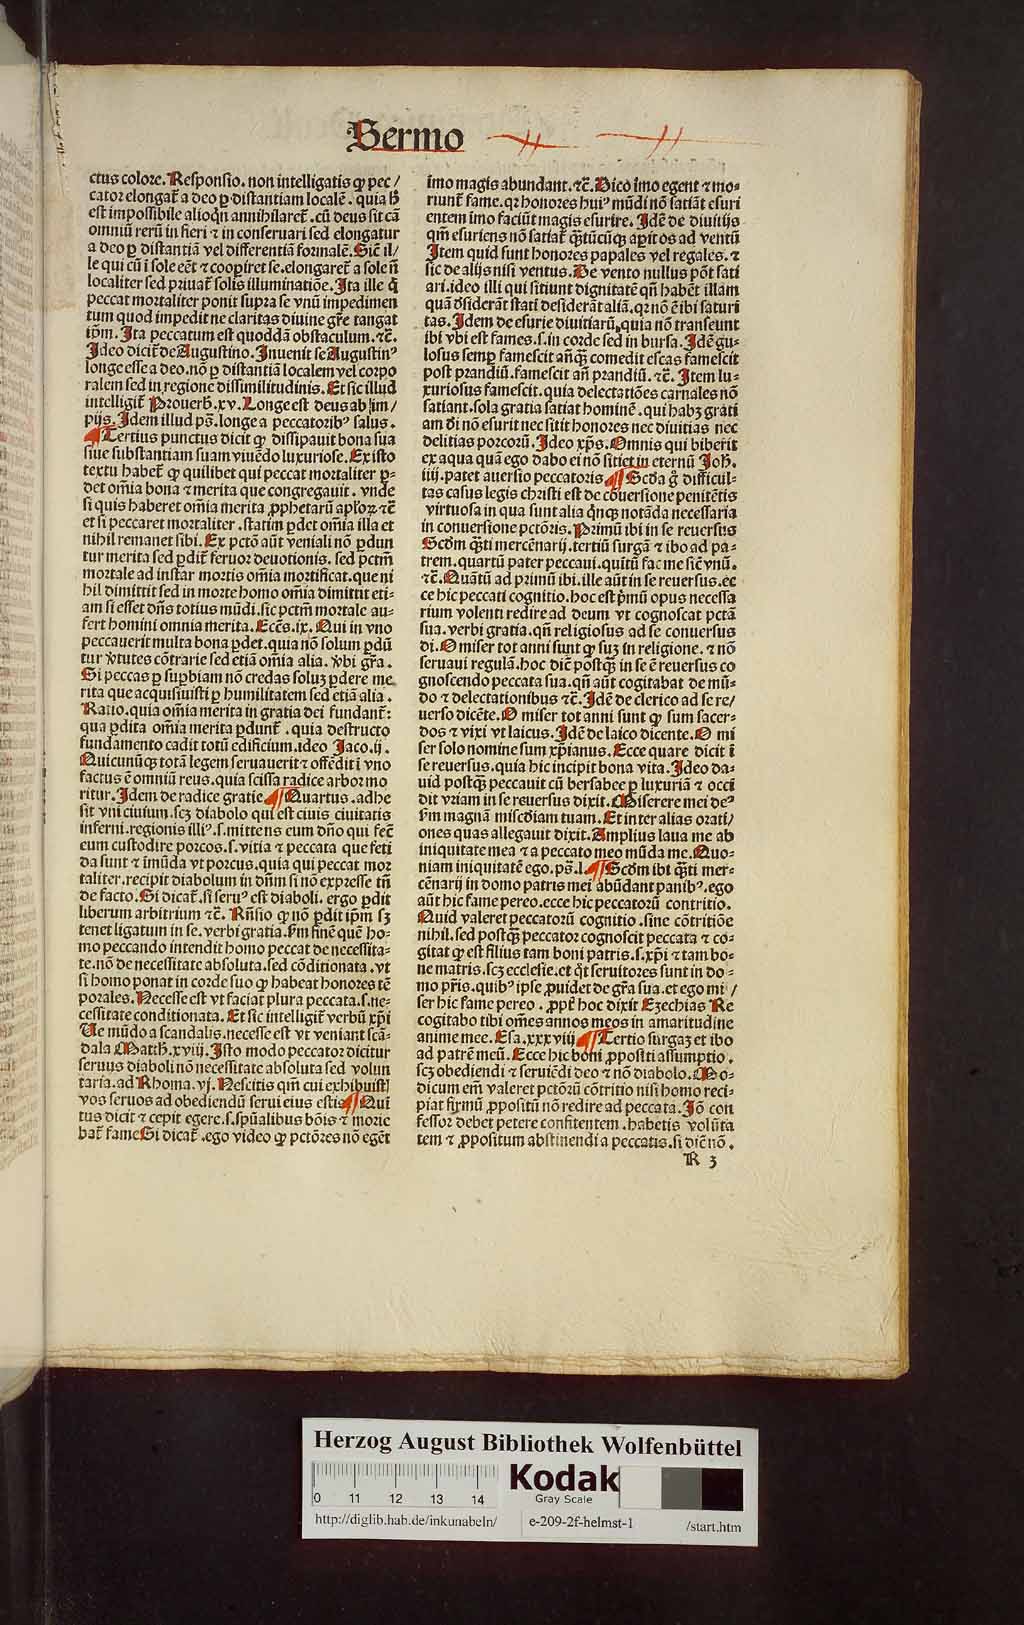 Sermo
ctus colore. Responsio. non intelligatis ꝙ pec/
cator elongat᷑ a deo ꝑ distantiam localē. quia h̄
est impossibile alioqͥn annihilaret᷑. cū deus sit cā
omniū rerū in fieri ⁊ in conseruari sed elongatur
a deo ꝑ distantiā vel differentiā formalē. Sic̄ il/
le qui cū ī sole eēt ⁊ cooꝑiret se. elongaret᷑ a sole n̄
localiter sed priuat᷑ solis illuminatiōe. Ita ille qͥ
peccat mortaliter ponit supra se vnū impedimen
tum quod impedit ne claritas diuine gr̄e tangat
ip̄m. Ita peccatum est quoddā obstaculum. ⁊c̄.
Ideo dicit᷑ de Augustino. Inuenit se Augustinꝰ
longe esse a deo. nō ꝑ distantiā localem vel corpo
ralem sed in regione dissimilitudinis. Et sic illud
intelligit᷑ Prouerb̄. xv. Longe est deus ab im/
pijs. Idem illud ps̄. longe a peccatoribꝰ salus.
¶ Tertius punctus dicit ꝙ dissipauit bona sua
siue substantiam suam viuēdo luxuriose. Ex isto
textu habet᷑ ꝙ quilibet qui peccat mortaliter ꝑ-
det om̄ia bona ⁊ merita que congregauit. vnde
si quis haberet om̄ia merita ꝓphetarū apl'oꝝ ⁊c̄
et si peccaret mortaliter. statim ꝑdet om̄ia illa et
nihil remanet sibi. Ex pctō aūt veniali nō ꝑdun
tur merita sed ꝑdit᷑ feruor deuotionis. sed pctm̄
mortale ad instar mortis om̄ia mortificat. que ni
hil dimittit sed in morte homo om̄ia dimittit eti-
am si esset dn̄s totius mūdi. sic pctm̄ mortale au-
fert homini omnia merita. Ecc̄s. ix. Qui in vno
peccauerit multa bona ꝑdet. quia nō solum ꝑdū
tur v̓tutes cōtrarie sed etiā om̄ia alia. v̓bi gr̄a.
Si peccas ꝑ suꝑbiam nō credas soluꝫ ꝑdere me
rita que acquisiuisti ꝑ humilitatem sed etiā alia.
Ratio. quia om̄ia merita in gratia dei fundant᷑:
qua ꝑdita om̄ia merita ꝑdunt᷑. quia destructo
fundamento cadit totū edificium. ideo Jaco. ij.
Quicunqꝫ totā legem seruauerit ⁊ offēdit ī vno
factus ē omniū reus. quia scissa radice arbor mo
ritur. Idem de radice gratie ¶ Quartus. adhe
sit vni ciuium. scꝫ diabolo qui est ciuis ciuitatis
inferni. regionis illiꝰ. s. mittens eum dn̄o qui fec̄
eum custodire porcos. s. vitia ⁊ peccata que feti
da sunt ⁊ īmūda vt porcus. quia qui peccat mor
taliter. recipit diabolum in dn̄m si nō expresse tn̄
de facto. Si dicat᷑. si seruꝰ est diaboli. ergo ꝑdit
liberum arbitrium ⁊c̄. Rn̄sio ꝙ nō ꝑdit ip̄m sꝫ
tenet ligatum in se. verbi gratia. ẜm finē quē ho-
mo peccando intendit homo peccat de necessita-
te. nō de necessitate absoluta. sed cōditionata. vt
si homo ponat in corde suo ꝙ habeat honores tē
porales. Necesse est vt faciat plura peccata. s. ne-
cessitate conditionata. Et sic intelligit᷑ verbū xp̄i
Ve mūdo a scandalis. necesse est vt veniant scā-
dala Matth̄. xviij. Isto modo peccator dicitur
seruus diaboli nō necessitate absoluta sed volun
taria. ad Rhoma. vj. Nescitis qm̄ cui exhibuisti
vos seruos ad obediendū serui eius estis ¶ Quī
tus dicit ⁊ cepit egere. s. spūalibus bōis ⁊ morie
bat᷑ fame Si dicat᷑. ego video ꝙ pctōres nō egēt
īmo magis abundant. ⁊c̄. Dico īmo egent ⁊ mo-
riunt᷑ fame. qꝛ honores huiꝰ mūdi nō satiāt esuri
entem īmo faciūt magis esurire. Idē de diuitijs
qm̄ esuriens nō satiat᷑ qͣ̄tūcūqꝫ aꝑit os ad ventū
Item quid sunt honores papales vel regales. ⁊
sic de alijs nisi ventus. De vento nullus pōt sati
ari. ideo illi qui sitiunt dignitatē qn̄ habēt illam
quā d̓siderāt stati desiderāt aliā. qꝛ nō ē ibi saturi
tas. Idem de esurie diuitiarū. quia nō transeunt
ibi vbi est fames. s. in corde sed in bursa. Idē gu-
losus semꝑ famescit an̄qꝫ comedit escas famescit
post prandiū. famescit an̄ prandiū. ⁊c̄. Item lu-
xuriosus famescit. quia delectatiōes carnales nō
satiant. sola gratia satiat hominē. qui habꝫ grati
am di nō esurit nec sitit honores nec diuitias nec
delitias porcorū. Ideo xp̄s. Omnis qui biberit
ex aqua quā ego dabo ei nō sitiet in eternū Joh̄.
iiij. patet auersio peccatoris ¶ Scd̄a gͦ difficul-
tas casus legis christi est de cōuersione penitētis
virtuosa in qua sunt alia qͥnqꝫ notāda necessaria
in conuersione pctōris. Primū ibi in se reuersus
Scd̄m qͣ̄ti mercēnarij. tertiū surgā ⁊ ibo ad pa-
trem. quartū pater peccaui. quītū fac me sic̄ vnū.
⁊c̄. Quātū ad primū ibi. ille aūt in se reuersus. ec
ce hic peccati cognitio. hoc est pͥmū opus necessa
rium volenti redire ad deum vt cognoscat pctā
sua. verbi gratia. qn̄ religiosus ad se conuersus
di. O miser tot anni sunt ꝙ suꝫ in religione. ⁊ nō
seruaui regulā. hoc dic̄ postqꝫ in se ē reuersus co
gnoscendo peccata sua. qn̄ aūt cogitabat de mū-
do ⁊ delectationibus ⁊c̄. Idē de clerico ad se re/
uerso dicēte. O miser tot anni sunt ꝙ sum sacer-
dos ⁊ vixi vt laicus. Idē de laico dicente. O mi
ser solo nomine sum xp̄ianus. Ecce quare dicit ī
se reuersus. quia hic incipit bona vita. Ideo da-
uid postqꝫ peccauit cū bersabee ꝑ luxuriā ⁊ occi
dit vriam in se reuersus dixit. Miserere mei deꝰ
ẜm magnā misc̄diam tuam. Et inter alias orati/
ones quas allegauit dixit. Amplius laua me ab
iniquitate mea ⁊ a peccato meo mūda me. Quo-
niam iniquitatē ego. ps̄. l. ¶ Scd̄m ibi qͣ̄ti mer-
cēnarij in domo patris mei abūdant panibꝰ. ego
aūt hic fame pereo. ecce hic peccatorū contritio.
Quid valeret peccatorū cognitio. sine cōtritiōe
nihil. sed postqꝫ peccator cognoscit peccata ⁊ co-
gitat ꝙ est filius tam boni patris. s. xp̄i ⁊ tam bo-
ne matris. scꝫ ecclesie. et qͦt seruitores sunt in do-
mo pr̄is. quibꝰ ipse ꝓuidet de gr̄a sua. et ego mi/
ser hic fame pereo. ꝓpt̓ hoc dixit Ezechias Re
cogitabo tibi om̄es annos meos in amaritudine
anime mee. Esa. xxxviij ¶ Tertio surgaꝫ et ibo
ad patrē meū. Ecce hic boni ꝓpositi assumptio.
scꝫ obediendi ⁊ seruiēdi deo ⁊ nō diabolo. Mo-
dicum em̄ valeret pctōrū cōtritio nisi homo reci-
piat firmū ꝓpositū nō redire ad peccata. Iō con
fessor debet petere confitentem. habetis volūta
tem ⁊ ꝓpositum abstinendi a peccatis. si dic̄ nō.
R 3
Herzog August Bibliothek Wolfenbüttel
0 11 12 13 14
Kodak
Gray Scale
http://diglib.hab.de/inkunabeln/ e-209-2f-helmst-1 /start.htm